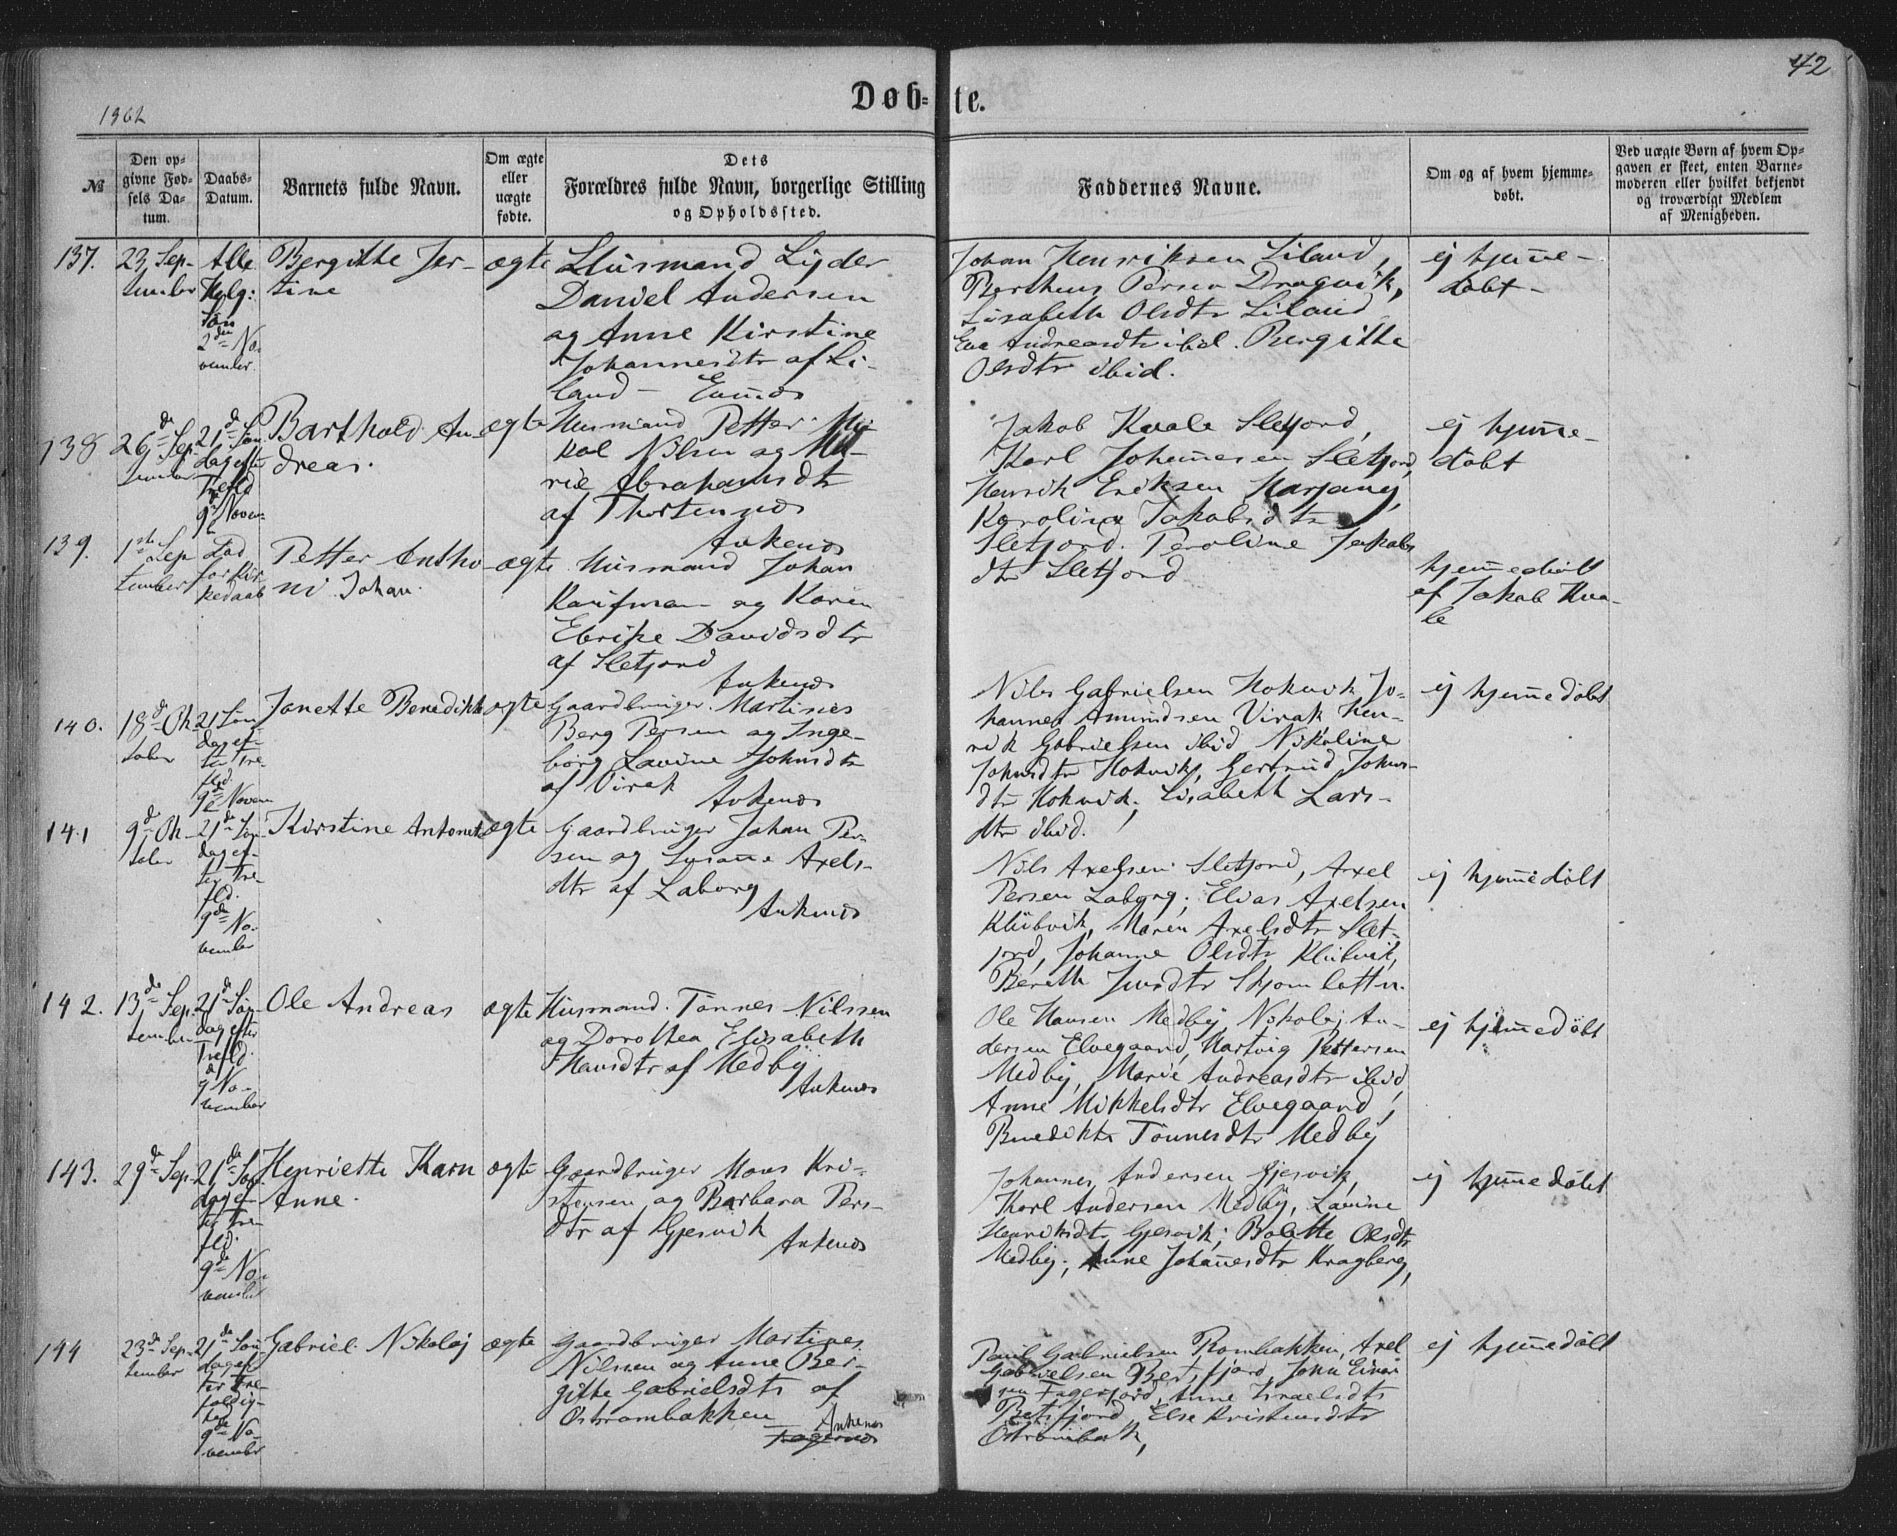 1862
42
Døb-te.
№
Den op-
givne Fød-
sels Da-
tum.
Daabs-
Datum.
Barnets fulde Navn.
Om ægte
eller
uægte
fødte.
Dets
Forældres fulde Navn, borgerlige Stilling
og Opholdssted.
Faddernes Navne.
Om og af hvem hjemme-
døbt.
Ved uægte Børn af hvem Op-
gaven er skeet, enten Barne-
moderen eller hvilket bekjendt
og troværdigt Medlem
af Menigheden.
137.
23 Sep-
tember
Alle
Helg:
Søn
2den No-
vember.
Bergitte Jor-
tine
ægte
Husmand Lyder
Daniel Andersen
og Anne Kirstine
Johannesdtr af Li-
land - Evenæs
Johan Henriksen Liland,
Bertheus Persen Dragvik,
Lisabeth Olsdtr Liland
Eva Andreasdtr ibid. Bergitte
Olsdtr ibid.
ej hjemme-
døbt-
138
26de Sep-
tember
21de Søn-
dag efter
Trefld
9de Novem-
Barthold An-
dreas.
ægte
Husmand Petter Mi-
kal Nilsen og Ma-
rie Abrahamsdtr
af Thortennes
Ankenes
Jakob Kvale Sletjord,
Karl Johannesen Sletjord
Henrik Eriksen Harjang,
Karoline Jakobsdtr
Sletjord. Peroline Jakobs
dtr Sletjord
ej hjemme-
døbt
139.
1ste Sep
tember
Lød
for Kir
kedaab
Petter Antho-
ni Johan.
ægte
Husmand Johan
Kaufman og Karen
Ebrike Davidsdtr
af Sletjord
Ankenes
hjemmedøbt
af Jakob Kva-
le
140.
18de Ok-
tober
21 Søn-
dag ef-
ter Tre-
fld.
9de Novem
Janette Benedikte
ægte
Gaardbruger Martines
Berg Persen og Inge-
borg Lavine Johnsdtr
af Virak
Ankenes
Nils Gabrielsen Hokvik Jo-
hannes Amundsen Virak Hen-
rik Gabrielsen ibid Nikoline
Johnsdtr Hokvik, Gertrud Johns-
dtr Hokvik, Lisabeth Lars-
dtr ibid.
ej hjemmedøbt
141
9de Ok-
tober
21de Søn-
dag ef-
ter Tre-
fld.
9de No-
vember
Kirstine Antonette
ægte
Gaardbruger Johan Per-
sen og Susanne Axels-
dtr af Laborg
Ankenes
Nils Axelsen Sletjord, Axel
Persen Laborg, Elias Axelsen
Klubvik, Maren Axelsdtr Slet-
jord, Johanne Olsdtr Klubvik,
Bereth Jensdtr Skjomlotten.
ej hjemmedøbt
142.
13de Sep-
tember
21de Søn-
dag efter
Trefld.
9 No-
vember
Ole Andreas
ægte
Husmand. Tønnes Nilssen
og Dorothea Elisabeth
Hansdtr af Medby
Ankenes
Ole Hansen Medby, Nikolaj An-
dersen Elvegaard, Hartvig Pettersen
Medby, Marie Andreasdtr ibid,
Anne Mikkelsdtr Elvegaard,
Benedikte Tønnesdtr Medby
ej hjemmedøbt
143.
29de Sep-
21de Søn-
dag ef-
ter Tre-
fld.
9de No-
vember
Henriette Karn
Anne.
ægte
Gaardbruger Mons Kri-
stensen og Barbara Pers-
dtr af Gjesvik
Ankenes
Johannes Andersen Gjesvik,
Karl Andersen Medby, Lavine
Henriksdtr Gjesvik; Bolette Olsdtr
Medby; Anne Johannesdtr Kragberg,
ej hjemmedøbt
144
23de Sep-
tember
21de Søn-
dag ef-
ter Tre-
foldig-
hed
9de No-
vember
Gabriel Nikolaj
ægte
Gaardbruger Martines
Nilsen og Anne Ber-
gitte Gabrielsdtr af
Østrombakken
Ankenes
Fagernes
Paul Gabrielsen Rombakken, Axel
Gabrielsen Beisfjord, John Einar-
sen Fagerjord, Anne Israelsdtr
Beisfjord, Else Kristensdtr
Østrombak,
ej hjemmedøbt